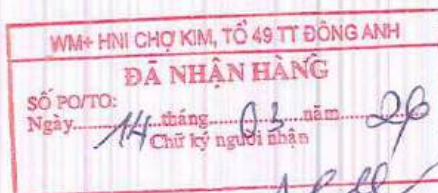 WM+ HNI CHỢ KIM, TỔ 49 TT ĐÔNG ANH
ĐÃ NHẬN HÀNG
SỐ PO/TO:
Ngày.........14.....tháng........03....năm.......26
Chữ ký người nhận